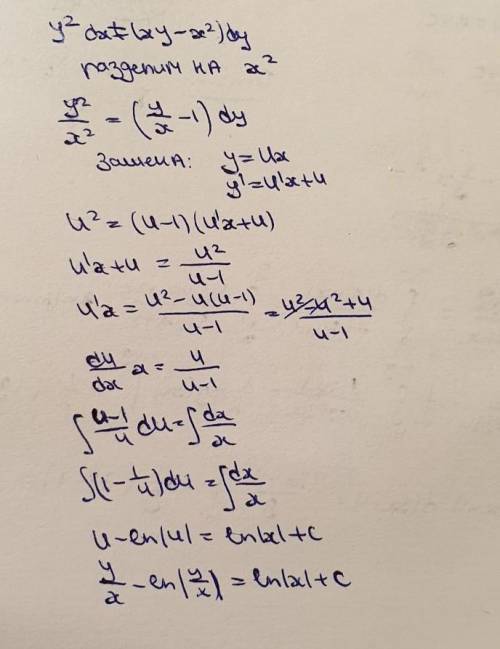 y² dx = (xy - x²) dy
разделим на x²
y²/x² = (y/x - 1) dy
Замена: y = ux
y' = u'x + u
u² = (u-1)(u'x+u)
u'x + u = u²/(u-1)
u'x = (u² - u(u-1))/(u-1) = (u² - u² + u)/(u-1)
du/dx x = u/(u-1)
∫ (u-1)/u du = ∫ dx/x
∫ (1 - 1/u) du = ∫ dx/x
u - ln|u| = ln|x| + C
y/x - ln|y/x| = ln|x| + C